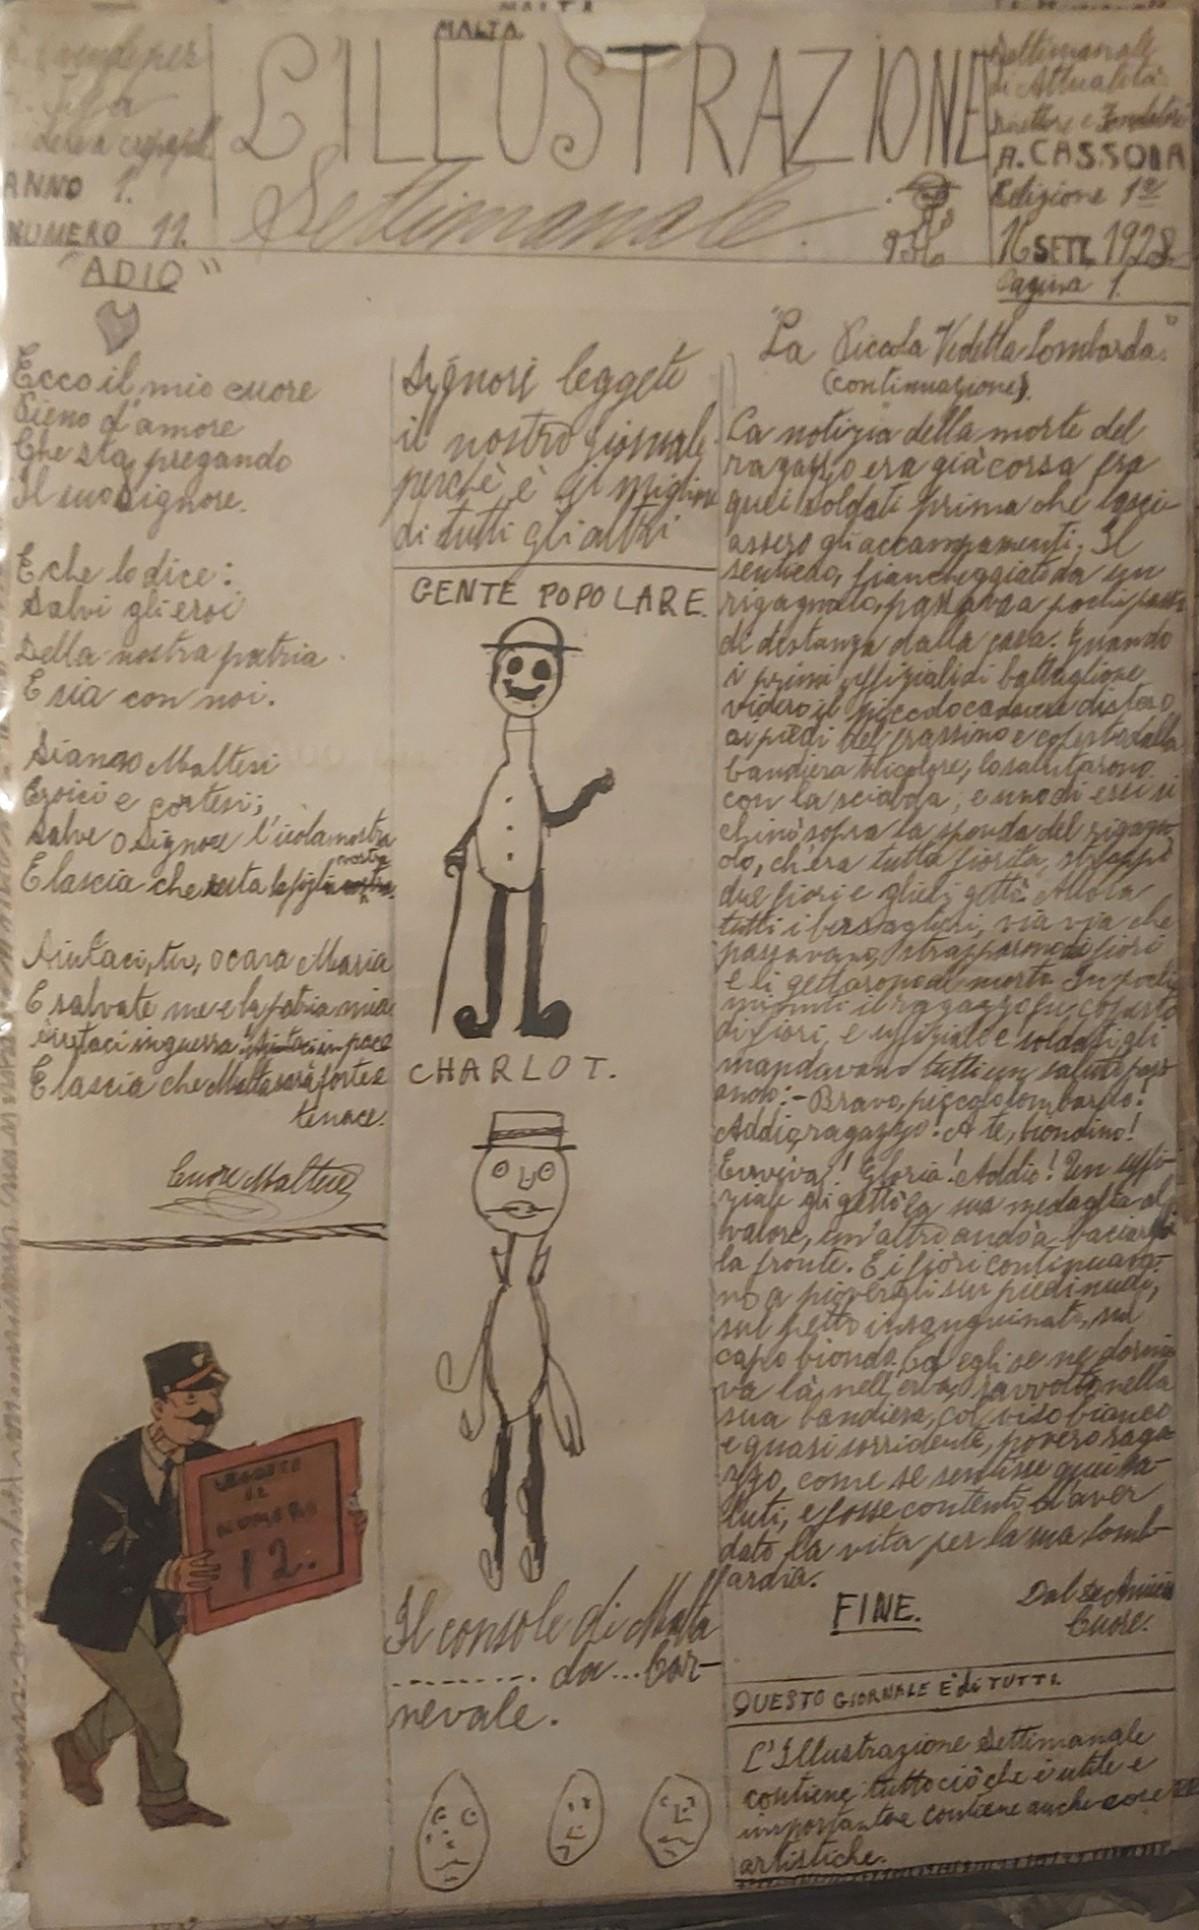 MALTA
L'ILLUSTRAZIONE
Settimanale
ANNO 1.
NUMERO 11.
Settimanale
di Attualità
Direttore e Fondatore
A. CASSOLA
Edizione 1a
16 SETT. 1928
Pagina 1.
"ADIO"
Ecco il mio cuore
Pieno d'amore
Che sta pregando
Il suo Signore.
E che lo dice:
Salvi gli eroi
Della nostra patria
E sia con noi.
Siamo Maltesi
Eroici e cortesi;
Salve o Signore l'isola nostra
E lascia che resta la figlia nostra
Aiutaci, tu, o cara Maria
E salvate me e la patria mia
in guerra in pace
E lascia che Malta sarà forte e
tenace.
Cuore Maltese
NUMERO
12.
Signori leggete
il nostro giornale
perchè è il migliore
di tutti gli altri
GENTE POPOLARE.
CHARLOT.
Il console di Malta
......... da ... Car-
nevale.
"La Piccola Vedetta Lombarda"
(continuazione).
La notizia della morte del
ragazzo era già corsa fra
quei soldati prima che lasci-
assero gli accampamenti. Il
sentiero, fiancheggiato da un
rigagnolo, passava a pochi passi
di distanza dalla casa. Quando
i primi uffiziali di battaglione
videro il piccolo cadavere disteso
ai piedi del frassino e coperto dalla
bandiera tricolore, lo salutarono
con la sciabola, e uno di essi si
chinò sopra la sponda del rigagn-
olo, ch'era tutta fiorita, strappò
due fiori e glieli gettò. Allora
tutti i bersaglieri, via via che
passavano, strapparono di fiori
e li gettarono al morto. In pochi
minuti il ragazzo fu coperto
di fiori, e uffiziali e soldati gli
mandavano tutti un saluto pass-
ando:- Bravo, piccolo lombardo!
Addio, ragazzo! A te, biondino!
Evviva! Gloria! Addio! Un uffi-
ziale gli gettò la sua medaglia al
valore, un'altro andò a baciargli
la fronte. E i fiori continuava-
no a piovergli sui piedi nudi,
sul petto insanguinato, sul
capo biondo. Ed egli se ne dormi-
va là, nell'erba, ravvolto nella
sua bandiera, col viso bianco
e quasi sorridente, povero raga-
zzo, come se sentisse quei sa-
luti, e fosse contento d'aver
dato la vita per la sua Lomb-
ardia.
FINE.
Dal De Amicis
Cuore.
QUESTO GIORNALE E' di TUTTI.
L'Illustrazione Settimanale
contiene tutto ciò che è utile e
importante contiene anche cose
artistiche.